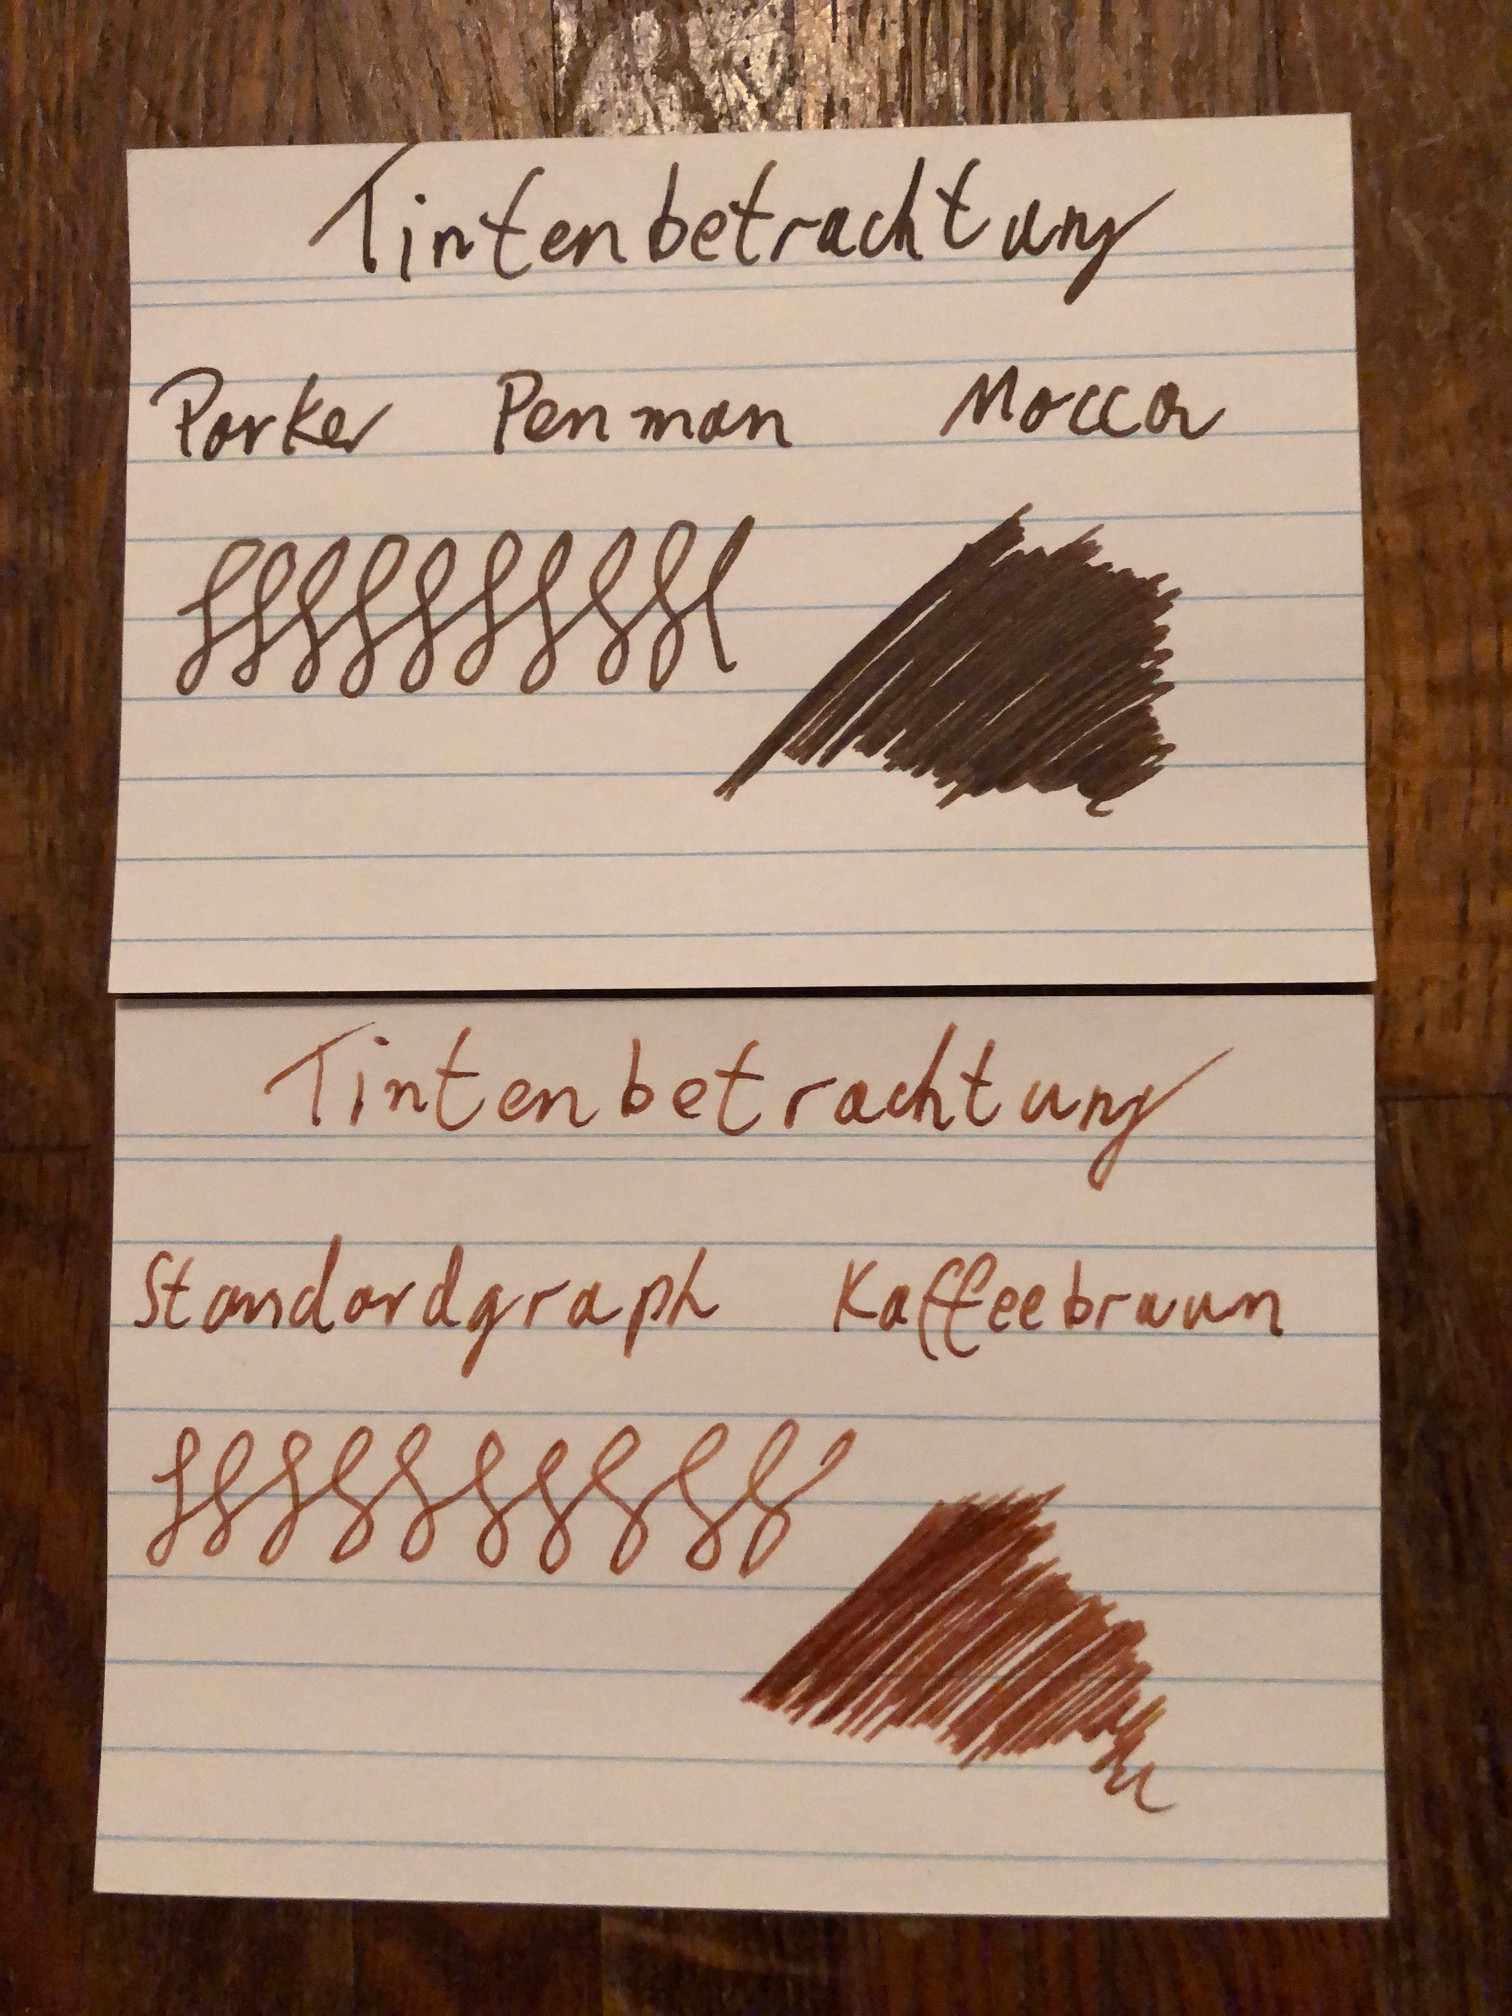 Tintenbetrachtung
Parker Penman Mocca
Tintenbetrachtung
Standardgraph Kaffeebraun